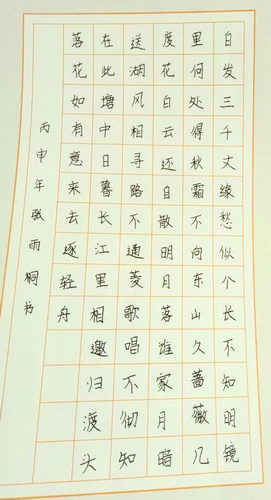 白发三千丈缘愁似个长不知明镜
里何处得秋霜不向东山久蔷薇几
度花白云还自散明月落谁家月暗
送湖风相寻路不通菱歌唱不彻知
在此塘中日暮长江里相邀归渡头
落花如有意来去逐轻舟
丙申年张雨桐书